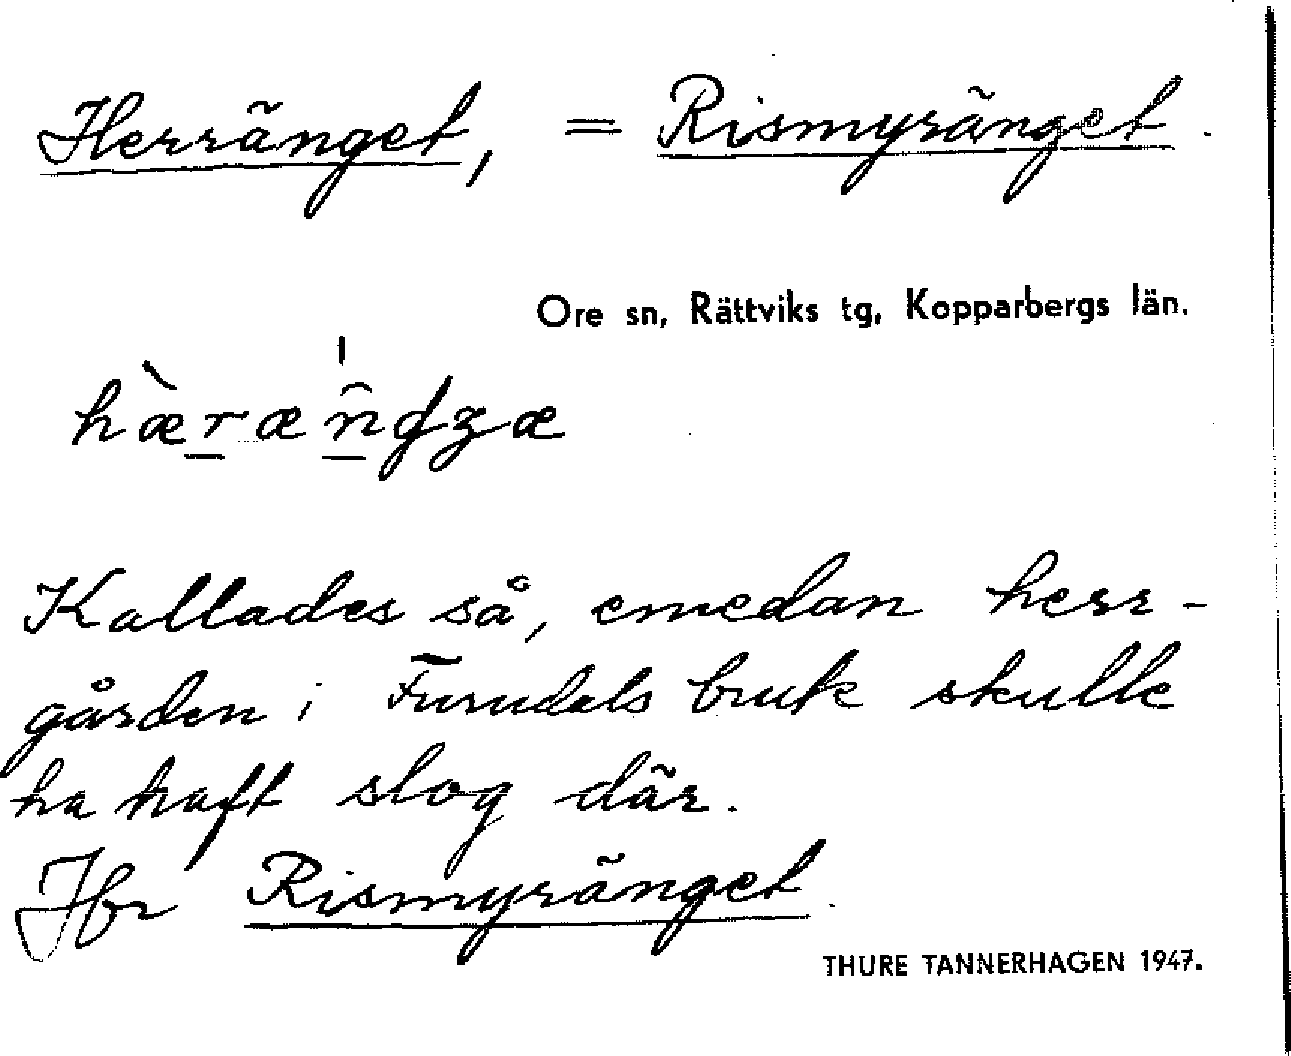 Herränget, = Rismyränget.
Ore sn, Rättviks tg, Kopparbergs län.
Kallades så, emedan herr-
gården i Furudals bruk skulle
ha haft slog där.
Jfr Rismyränget.
THURE TANNERHAGEN 1947.